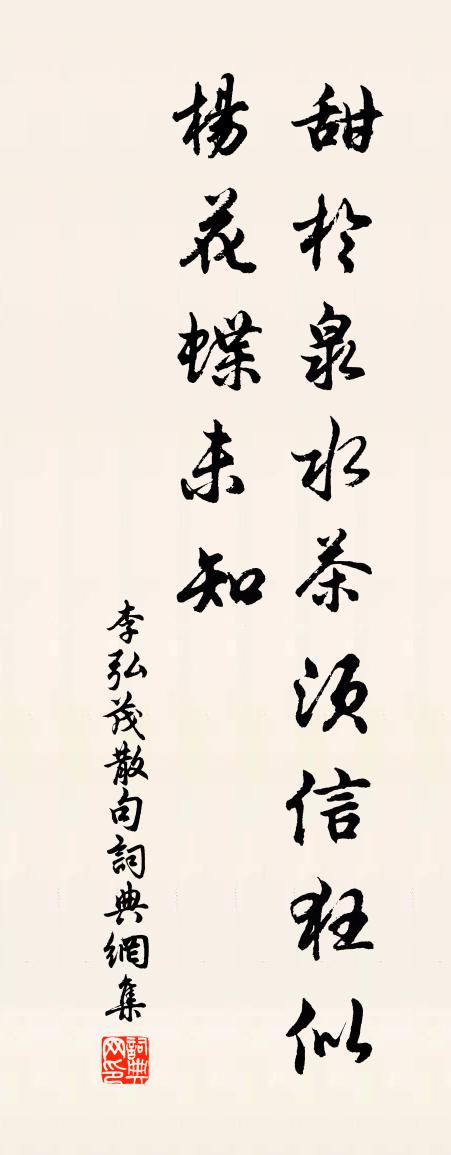 甜於泉水茶須信狂似
楊花蝶未知
李弘茂散句詞典網集
詞典网印